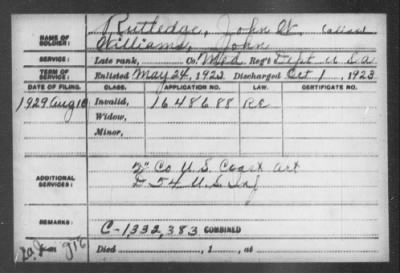 NAME OF SOLDIER: Rutledge, John W. called
Williams, John
SERVICE: Late rank, Co. Med. Reg't Dept. U S a
TERM OF SERVICE: Enlisted May 24, 1922 Discharged Oct 1, 1923
DATE OF FILING. CLASS. APPLICATION NO. LAW. CERTIFICATE NO.
1929 Aug 10 Invalid, 1648688 RE
Widow,
Minor,
ADDITIONAL SERVICES: 2" Co U.S. Coast Art
D 54 U.S. Inf
REMARKS: C-1,332,383 COMBINED
Died , 1 , at